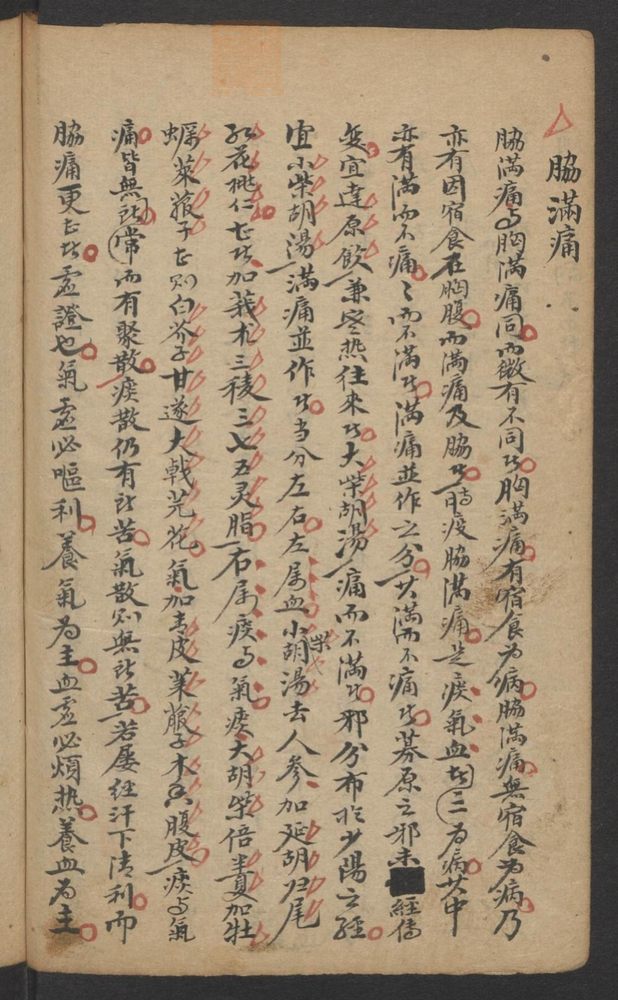 脇滿痛
脇滿痛与胸滿痛同而微有不同者胸滿痛有宿食为病脇滿痛無宿食为病乃
亦有因宿食在胸腹而滿痛及脇者時疫脇滿痛是痰氣血者三为病其中
亦有滿而不痛〻而不滿者滿痛並作之分其滿而不痛者募原之邪未經傳
変宜達原飲兼寒热往来者大柴胡湯痛而不滿者邪分布於少陽之經
宜小柴胡湯滿痛並作者当分左右左属血小柴胡湯去人参加延胡归尾
红花桃仁七者加莪术三稜三七五灵脂右属痰与氣痰大胡柴倍半夏加牡
蜾萊菔子七则白芥子甘遂大戟芫花氣加青皮萊菔子木香腹皮痰与氣
痛皆無形常而有聚散痰散仍有形苦氣散则無形苦若屡經汗下清利而
脇痛更七者虚證也氣虚必嘔利養氣为主血虚必煩热養血为主